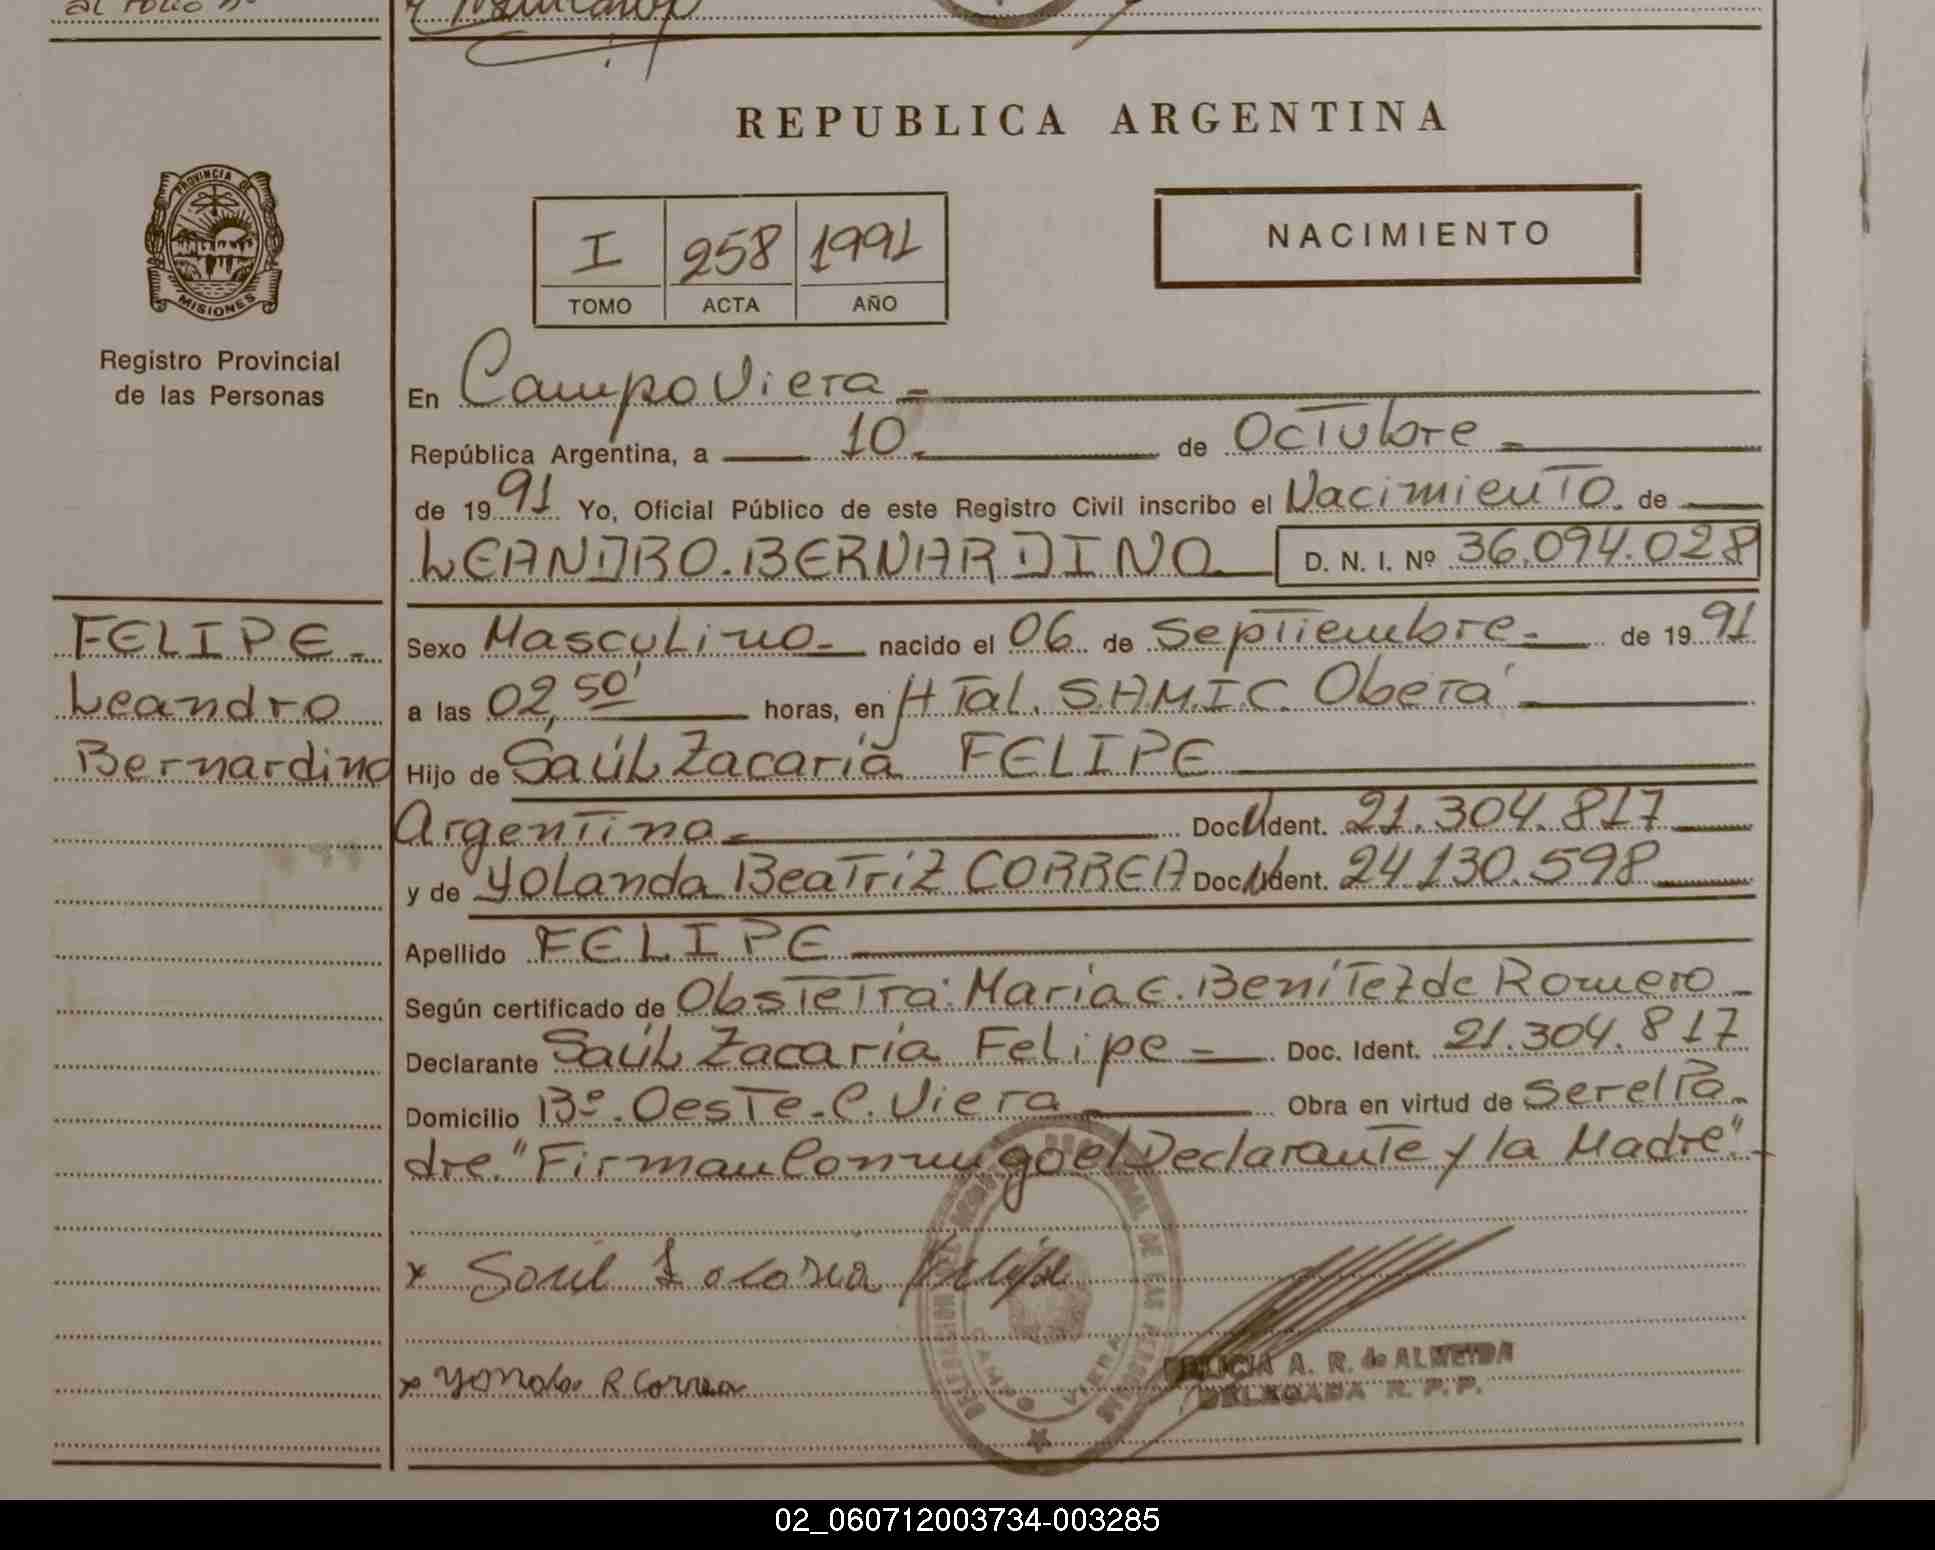 al Folio nº
REPUBLICA ARGENTINA
PROVINCIA DE
MISIONES
Registro Provincial
de las Personas
I 258 1991
TOMO ACTA AÑO
NACIMIENTO
En Campo Viera
República Argentina, a 10 de Octubre
de 1991 Yo, Oficial Público de este Registro Civil inscribo el Nacimiento de
LEANDRO BERNARDINO D. N. I. Nº 36.094.028
FELIPE
Leandro
Bernardino
Sexo Masculino nacido el 06 de Septiembre de 1991
a las 02,50' horas, en HTal. S.A.M.I.C. Oberá
Hijo de Saúl Zacaría FELIPE
Argentino Doc. Ident. 21.304.817
y de Yolanda Beatriz CORREA Doc. Ident. 24.130.598
Apellido FELIPE
Según certificado de Obstetra: María E. Benítez de Romero
Declarante Saúl Zacaría Felipe Doc. Ident. 21.304.817
Domicilio Bº. Oeste. C. Viera Obra en virtud de ser el Pa
dre. "Firman Conmigo el Declarante y la Madre".
x Saúl Zacaría Felipe
x Yolanda B Correa
DELEGACION DEL REGISTRO PROVINCIAL DE LAS PERSONAS
CAMPO VIERA
A. R. de ALMEIDA
DELEGADA R. P. P.
02_060712003734-003285